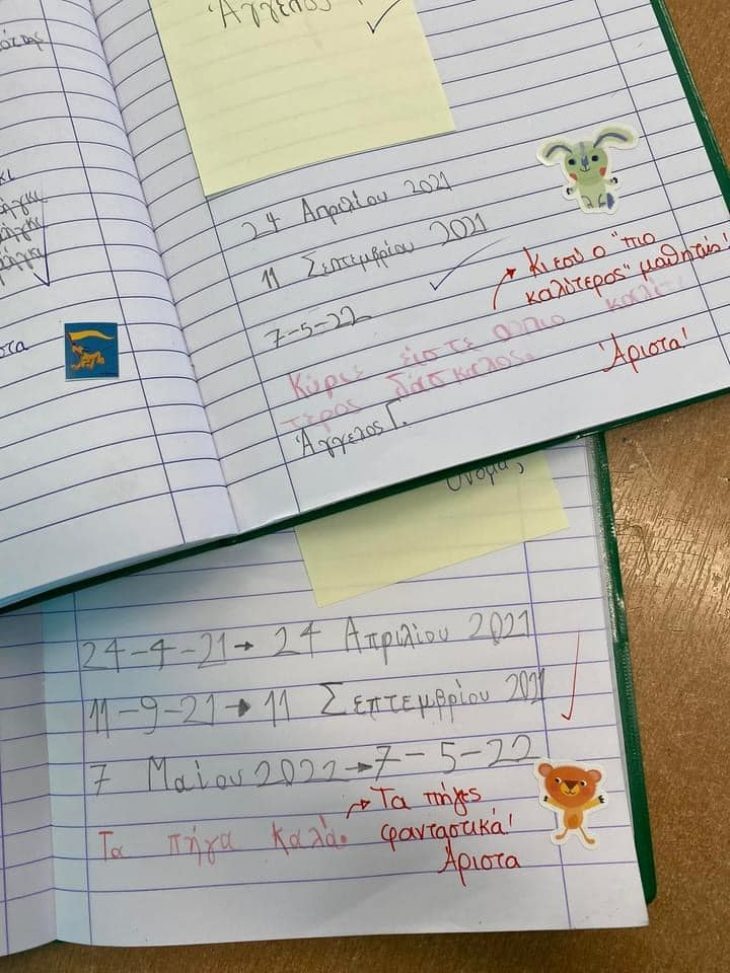 Άγγελος
24 Απριλίου 2021
11 Σεπτεμβρίου 2021
7-5-22
Κι εσύ ο "πιο
καλίτερος" μαθητής!
Κύριε είστε ο πιο καλί-
τερος δάσκαλος.
Άριστα!
Άγγελος Γ.
24-4-21→ 24 Απριλίου 2021
11-9-21→ 11 Σεπτεμβρίου 2021
7 Μαΐου 2022→7-5-22
Τα πήγα καλά.
Τα πήγες
φανταστικά!
Άριστα